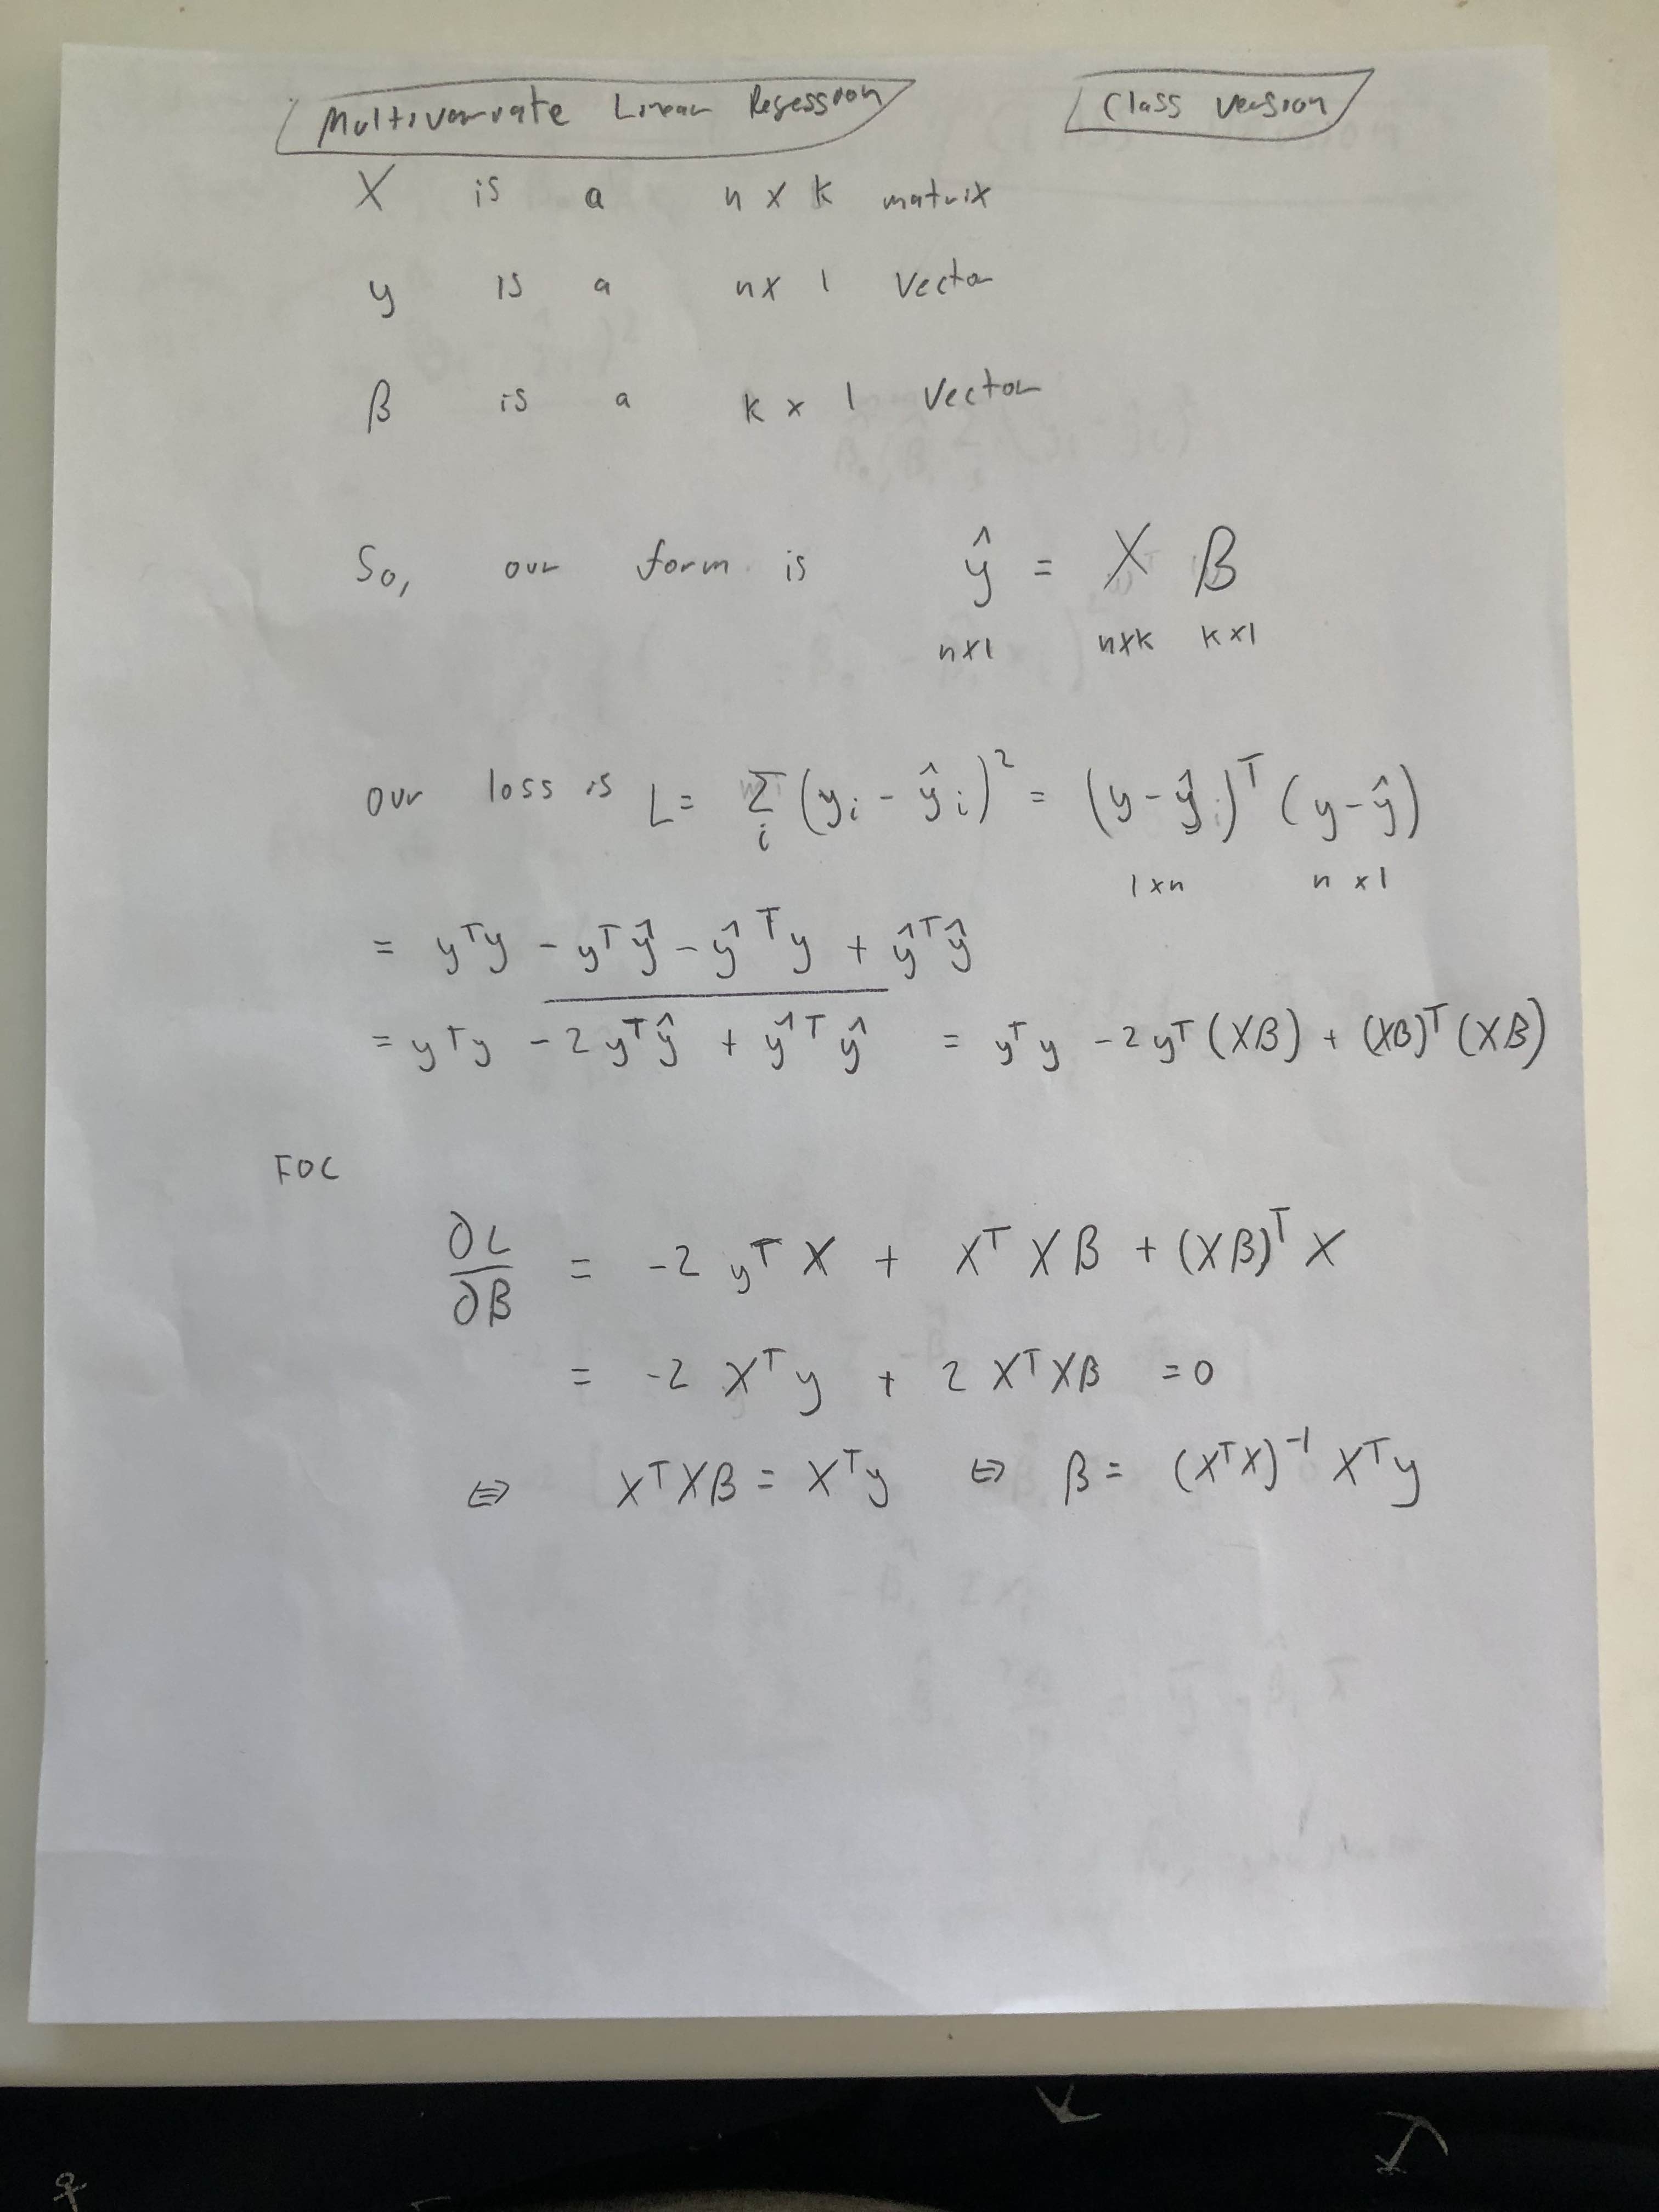 Multivariate Linear Regession
Class version
X is a n x k matrix
y is a n x 1 vector
β is a k x 1 vector
So, our form is ŷ = X β
n x 1 n x k k x 1
our loss is L = Σ_i (y_i - ŷ_i)² = (y - ŷ)ᵀ (y - ŷ)
1 x n n x 1
= yᵀy - yᵀŷ - ŷᵀy + ŷᵀŷ
= yᵀy - 2yᵀŷ + ŷᵀŷ = yᵀy - 2yᵀ(Xβ) + (Xβ)ᵀ(Xβ)
FOC
∂L/∂β = -2 yᵀX + XᵀXβ + (Xβ)ᵀX
= -2 Xᵀy + 2 XᵀXβ = 0
⇔ XᵀXβ = Xᵀy ⇔ β = (XᵀX)⁻¹ Xᵀy